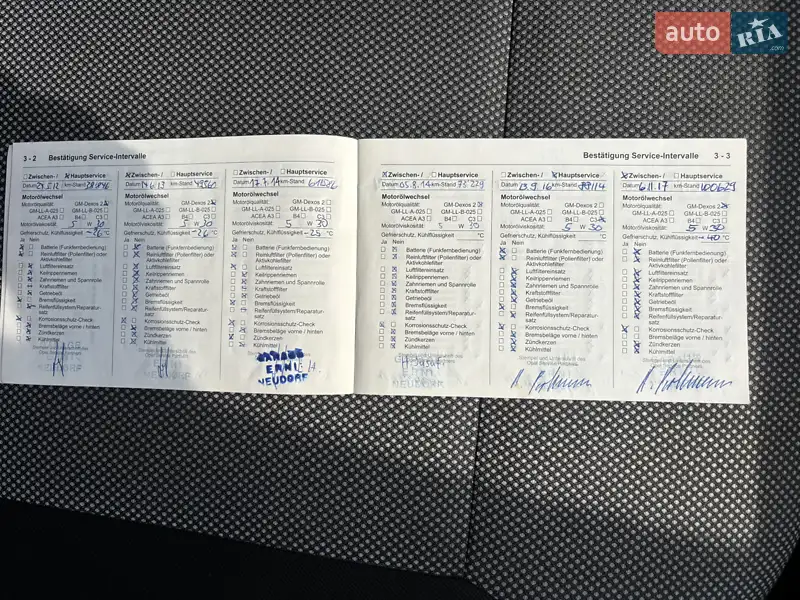 auto RIA .com
3 - 2 Bestätigung Service-Intervalle
Zwischen- / Hauptservice
Datum km-Stand
Motorölwechsel
Motorölqualität: GM-Dexos 2
GM-LL-A-025 GM-LL-B-025
ACEA A3 B4 C3
Motorölviskosität: 5 W 30
Gefrierschutz, Kühlflüssigkeit -26 °C
Ja Nein
Batterie (Funkfernbedienung)
Reinluftfilter (Pollenfilter) oder
Aktivkohlefilter
Luftfiltereinsatz
Keilrippenriemen
Zahnriemen und Spannrolle
Kraftstofffilter
Getriebeöl
Bremsflüssigkeit
Reifenfüllsystem/Reparatur-
satz
Korrosionsschutz-Check
Bremsbeläge vorne / hinten
Zündkerzen
Kühlmittel
Zwischen- / Hauptservice
Datum 14.6.13 km-Stand
Motorölwechsel
Motorölqualität: GM-Dexos 2
GM-LL-A-025 GM-LL-B-025
ACEA A3 B4 C3
Motorölviskosität: 5 W 30
Gefrierschutz, Kühlflüssigkeit -26 °C
Ja Nein
Batterie (Funkfernbedienung)
Reinluftfilter (Pollenfilter) oder
Aktivkohlefilter
Luftfiltereinsatz
Keilrippenriemen
Zahnriemen und Spannrolle
Kraftstofffilter
Getriebeöl
Bremsflüssigkeit
Reifenfüllsystem/Reparatur-
satz
Korrosionsschutz-Check
Bremsbeläge vorne / hinten
Zündkerzen
Kühlmittel
Zwischen- / Hauptservice
Datum 17.7.14 km-Stand
Motorölwechsel
Motorölqualität: GM-Dexos 2
GM-LL-A-025 GM-LL-B-025
ACEA A3 B4 C3
Motorölviskosität: 5 W 30
Gefrierschutz, Kühlflüssigkeit -25 °C
Ja Nein
Batterie (Funkfernbedienung)
Reinluftfilter (Pollenfilter) oder
Aktivkohlefilter
Luftfiltereinsatz
Keilrippenriemen
Zahnriemen und Spannrolle
Kraftstofffilter
Getriebeöl
Bremsflüssigkeit
Reifenfüllsystem/Reparatur-
satz
Korrosionsschutz-Check
Bremsbeläge vorne / hinten
Zündkerzen
Kühlmittel
GARAGE
ERNI
NEUDORF
Bestätigung Service-Intervalle 3 - 3
Zwischen- / Hauptservice
Datum 05.8.14 km-Stand 75229
Motorölwechsel
Motorölqualität: GM-Dexos 2
GM-LL-A-025 GM-LL-B-025
ACEA A3 B4 C3
Motorölviskosität: 5 W 30
Gefrierschutz, Kühlflüssigkeit °C
Ja Nein
Batterie (Funkfernbedienung)
Reinluftfilter (Pollenfilter) oder
Aktivkohlefilter
Luftfiltereinsatz
Keilrippenriemen
Zahnriemen und Spannrolle
Kraftstofffilter
Getriebeöl
Bremsflüssigkeit
Reifenfüllsystem/Reparatur-
satz
Korrosionsschutz-Check
Bremsbeläge vorne / hinten
Zündkerzen
Kühlmittel
NEUDORF
Zwischen- / Hauptservice
Datum 13.9.16 km-Stand
Motorölwechsel
Motorölqualität: GM-Dexos 2
GM-LL-A-025 GM-LL-B-025
ACEA A3 B4 C3
Motorölviskosität: 5 W 30
Gefrierschutz, Kühlflüssigkeit °C
Ja Nein
Batterie (Funkfernbedienung)
Reinluftfilter (Pollenfilter) oder
Aktivkohlefilter
Luftfiltereinsatz
Keilrippenriemen
Zahnriemen und Spannrolle
Kraftstofffilter
Getriebeöl
Bremsflüssigkeit
Reifenfüllsystem/Reparatur-
satz
Korrosionsschutz-Check
Bremsbeläge vorne / hinten
Zündkerzen
Kühlmittel
Zwischen- / Hauptservice
Datum 6.11.17 km-Stand 100629
Motorölwechsel
Motorölqualität: GM-Dexos 2
GM-LL-A-025 GM-LL-B-025
ACEA A3 B4 C3
Motorölviskosität: 5 W 30
Gefrierschutz, Kühlflüssigkeit -40 °C
Ja Nein
Batterie (Funkfernbedienung)
Reinluftfilter (Pollenfilter) oder
Aktivkohlefilter
Luftfiltereinsatz
Keilrippenriemen
Zahnriemen und Spannrolle
Kraftstofffilter
Getriebeöl
Bremsflüssigkeit
Reifenfüllsystem/Reparatur-
satz
Korrosionsschutz-Check
Bremsbeläge vorne / hinten
Zündkerzen
Kühlmittel